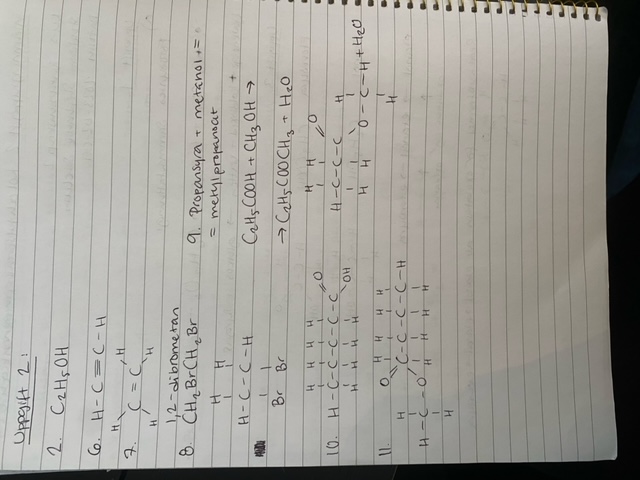 Uppgift 2:
2. C2H5OH
6. H-C≡C-H
7. H H
C = C
H H
1,2-dibrometan
8. CH2BrCH2Br
H H
H-C-C-H
Br Br
9. Propansyra + metanol +=
= metylpropanoat
+
C2H5COOH + CH3OH →
→ C2H5COOCH3 + H2O
H H H H O
10. H-C-C-C-C-C
H H H H OH
H H O
H-C-C-C H
H H O-C-H + H2O
H
11. O H H H H
H C-C-C-C-H
H-C-O H H H H
H